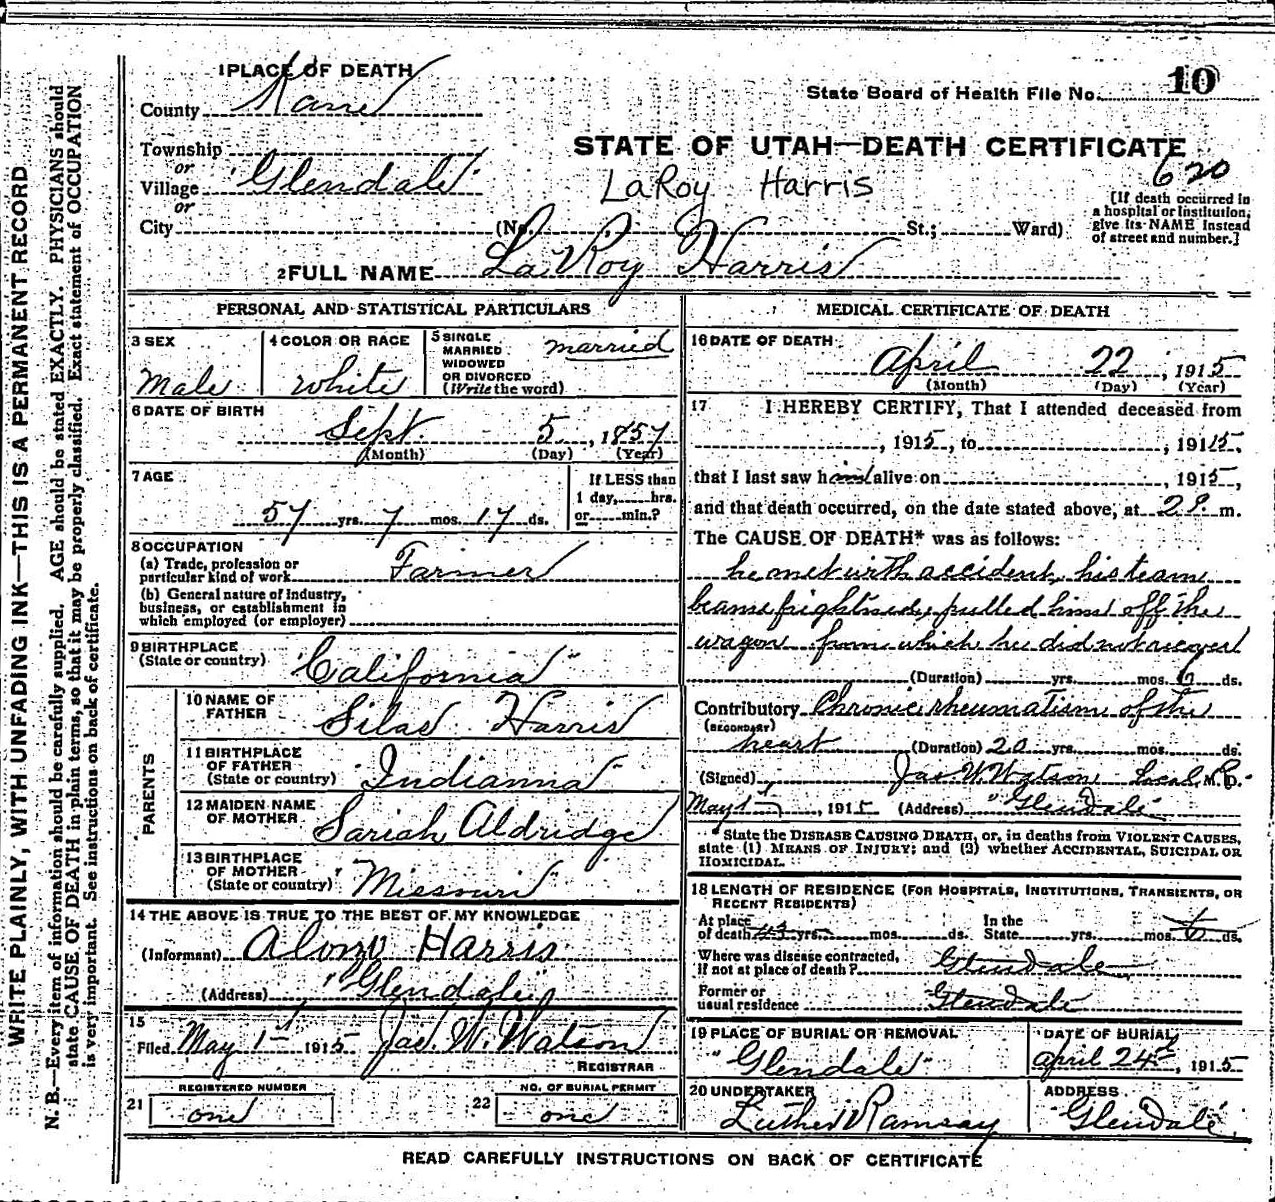 WRITE PLAINLY, WITH UNFADING INK—THIS IS A PERMANENT RECORD
N. B.—Every item of information should be carefully supplied. AGE should be stated EXACTLY. PHYSICIANS should
state CAUSE OF DEATH in plain terms, so that it may be properly classified. Exact statement of OCCUPATION
is very important. See instructions on back of certificate.
1 PLACE OF DEATH
County Kane
Township
or
Village "Glendale"
or
City
State Board of Health File No. 10
STATE OF UTAH—DEATH CERTIFICATE
620
LaRoy Harris
(No. St.; Ward)
[If death occurred in
a hospital or institution,
give its NAME instead
of street and number.]
2 FULL NAME LaRoy Harris
PERSONAL AND STATISTICAL PARTICULARS
3 SEX
Male
4 COLOR OR RACE
white
5 SINGLE
MARRIED
WIDOWED
OR DIVORCED
(Write the word)
married
6 DATE OF BIRTH
Sept. 5, 1857
(Month) (Day) (Year)
7 AGE
57 yrs. 7 mos. 17 ds.
If LESS than
1 day, hrs.
or min.?
8 OCCUPATION
(a) Trade, profession or
particular kind of work Farmer
(b) General nature of industry,
business, or establishment in
which employed (or employer)
9 BIRTHPLACE
(State or country) "California"
PARENTS
10 NAME OF
FATHER Silas Harris
11 BIRTHPLACE
OF FATHER
(State or country) "Indianna"
12 MAIDEN NAME
OF MOTHER Sariah Aldridge
13 BIRTHPLACE
OF MOTHER
(State or country) "Missouri"
14 THE ABOVE IS TRUE TO THE BEST OF MY KNOWLEDGE
(Informant) Alonzo Harris
(Address) "Glendale"
15
Filed May 1st 1915 Jas W. Watson
REGISTRAR
REGISTERED NUMBER
21 one
NO. OF BURIAL PERMIT
22 one
MEDICAL CERTIFICATE OF DEATH
16 DATE OF DEATH
April 22, 1915
(Month) (Day) (Year)
17 I HEREBY CERTIFY, That I attended deceased from
, 1915, to , 1915.
that I last saw him alive on , 1915,
and that death occurred, on the date stated above, at m.
The CAUSE OF DEATH* was as follows:
he met with accident, his team
became frightned, pulled him off the
wagon from which he did not recover
(Duration) yrs. mos. 6 ds.
Contributory Chronic rheumatism of the
(SECONDARY)
heart (Duration) 20 yrs. mos. ds.
(Signed) Jas W. Watson Local R. M.D.
May 1st, 1915 (Address) "Glendale"
*State the DISEASE CAUSING DEATH, or, in deaths from VIOLENT CAUSES,
state (1) MEANS OF INJURY; and (2) whether ACCIDENTAL, SUICIDAL OR
HOMICIDAL.
18 LENGTH OF RESIDENCE (FOR HOSPITALS, INSTITUTIONS, TRANSIENTS, OR
RECENT RESIDENTS)
At place
of death 43 yrs. mos. ds. In the
State yrs. mos. 6 ds.
Where was disease contracted,
if not at place of death? Glendale
Former or
usual residence Glendale
19 PLACE OF BURIAL OR REMOVAL
"Glendale"
DATE OF BURIAL
April 24th, 1915
20 UNDERTAKER
Luther Ramsay
ADDRESS
"Glendale"
READ CAREFULLY INSTRUCTIONS ON BACK OF CERTIFICATE